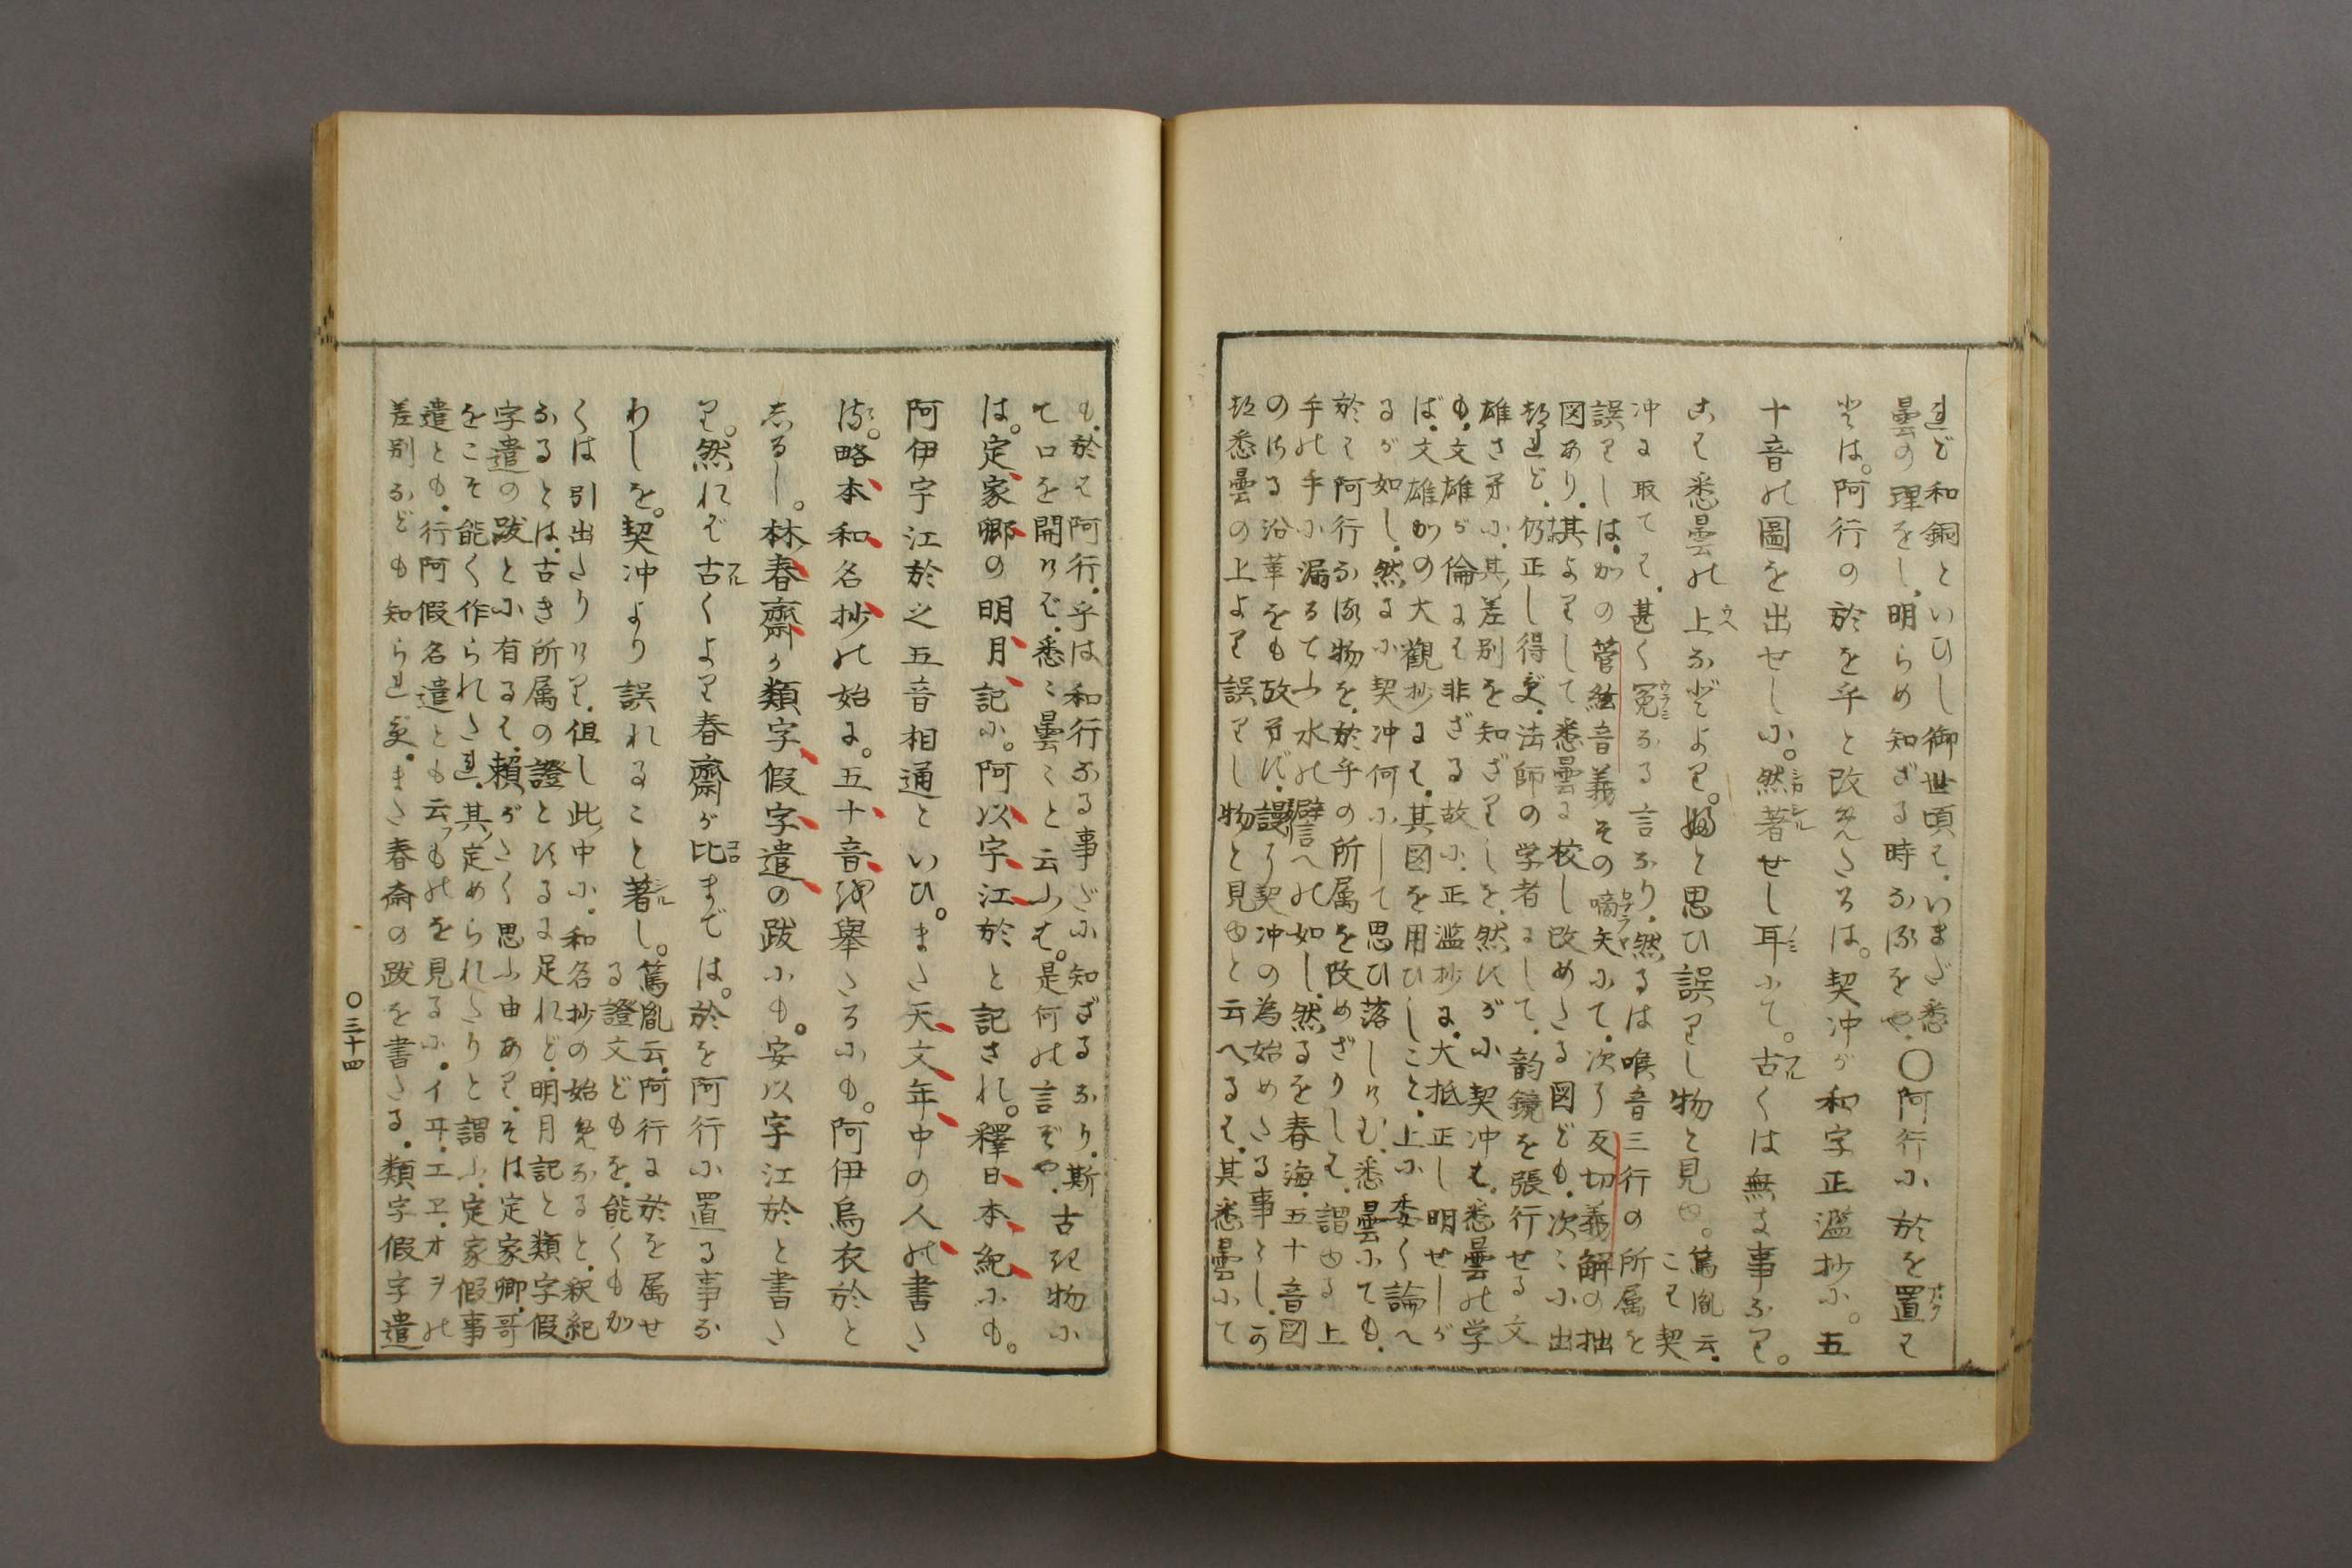 れど和銅といひし御世頃は、いまだ悉
曇の理をし、明らめ知ざる時なるをや、〇阿行に於を置は
とは。阿行の於を乎と改めたるは。契冲が和字正濫抄に。五
十音の圖を出せしに。然著せし耳にて。古くは無き事なり。
こは悉曇の上などより。婦と思ひ誤りし物と見ゆ。篤胤云、こは契
冲に取ては、甚く冤なる言なり、然るは喉音三行の所属を
誤りしは、かの管絃音義その嚆矢にて、次に反切義解の拙
図あり、其よりして悉曇に校し改めたる図ども、次々に出
たれど、仍正し得ず、法師の学者にして、韵鏡を張行せる文
雄さへに、其差別を知ざりしを、然すがに契冲は、悉曇の学
も、文雄が倫には非ざる故に、正濫抄に、大抵正し明せしが
ば、文雄かの大觀抄には、其図を用ひしこと、上に委く論へ
るが如し、然るに契冲何にして思ひ落しけむ、悉曇にても、
於は阿行なる物を、於乎の所属を改めざりしは、謂ゆる上
手の手に漏るてふ水の譬言への如し、然るを春海、五十音図
のける沿革をも攷へず、謾に契冲の為始めたる事とし、可
た悉曇の上より誤りし物と見ゆと云へるは、其悉曇にて
も、於は阿行、乎は和行なる事だに知ざるなり、斯
て口を開けば、悉々曇々と云ふは。是何の言ぞや、古き物に
は。定家卿の明月記に。阿以字江於と記され。釋日本紀にも。
阿伊宇江於之五音相通といひ。また天文年中の人の書た
る。略本和名抄の始に。五十音を舉たるにも。阿伊烏衣於と
しるし。林春齋が類字假字遣の跋にも。安以字江於と書た
り。然れば古くより春齋が比までは。於を阿行に置る事な
りしを。契冲より誤れること著し。篤胤云、阿行に於を属せ
る證文どもを、能くもか
くは引出たりけり、但し此中に、和名抄の始めなると、釈紀
なるとは、古き所属の證とするに足れど、明月記と類字假
字遣の跋とに有るは、頼がたく思ふ由あり、そは定家卿、哥
をこそ能く作られたれ、其定められたりと謂ふ、定家假事
遣とも、行阿假名遣とも云ふものを見るに、イヰ、エヱ、オヲの
差別なども知られず、また春斎の跋を書たる、類字假字遣
〇三十四